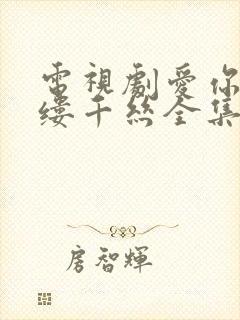 電視劇愛你
縷千絲全集
房智輝